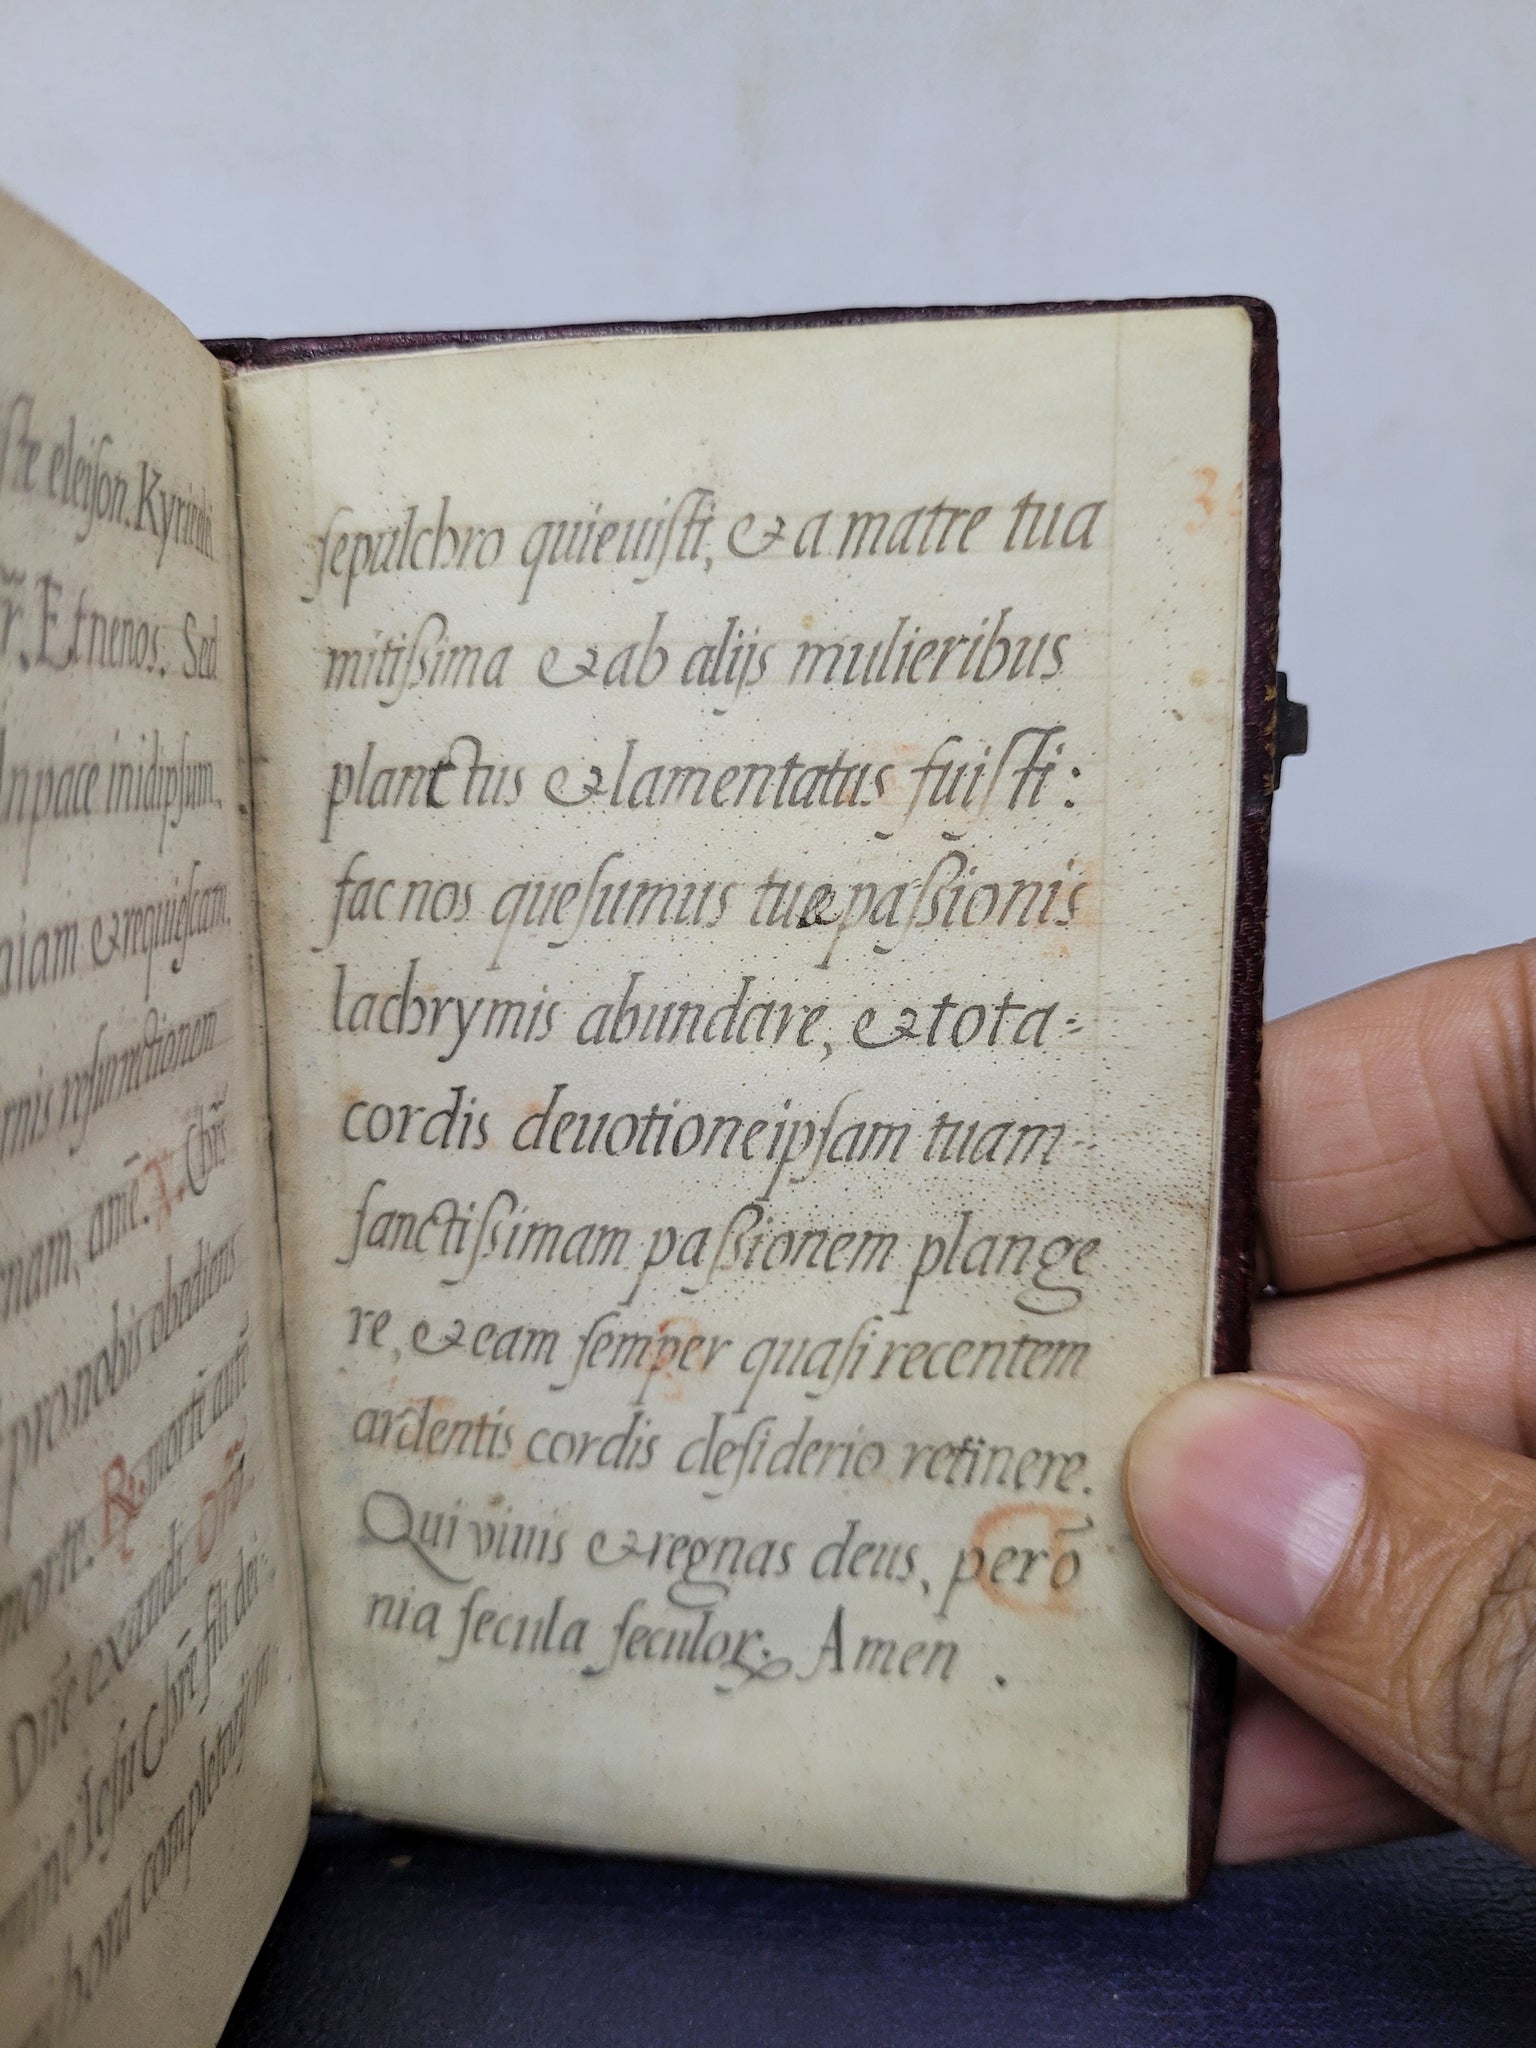 ste eleison. Kyrieelei
r. Et nenos. Sed
In pace inidipsum.
niam & requiescam.
rnis resurrectionem
nam, amē. V. Chrs̄
pro nobis obediens
morte. R. morti autē
Dn̄e exaudi. Orō.
mine Iesu Chrē fili dei
hora completorij in
34
ſepulchro quieuiſti, & a matre tua
mitiſsima & ab alijs mulieribus
planctus & lamentatus fuiſti:
fac nos queſumus tuæ paſsionis
lachrymis abundare, & tota-
cordis deuotione ipſam tuam-
ſanctiſsimam paſsionem plange
re, & eam ſemper quaſi recentem
ardentis cordis deſiderio retinere.
Qui viuis & regnas deus, per ō
nia ſecula ſeculor. Amen.